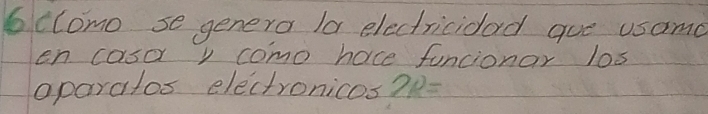 6 ¿Cómo se genera la electricidad que usamo
en casa y cómo hace funcionar los
aparatos eléctronicos? R=